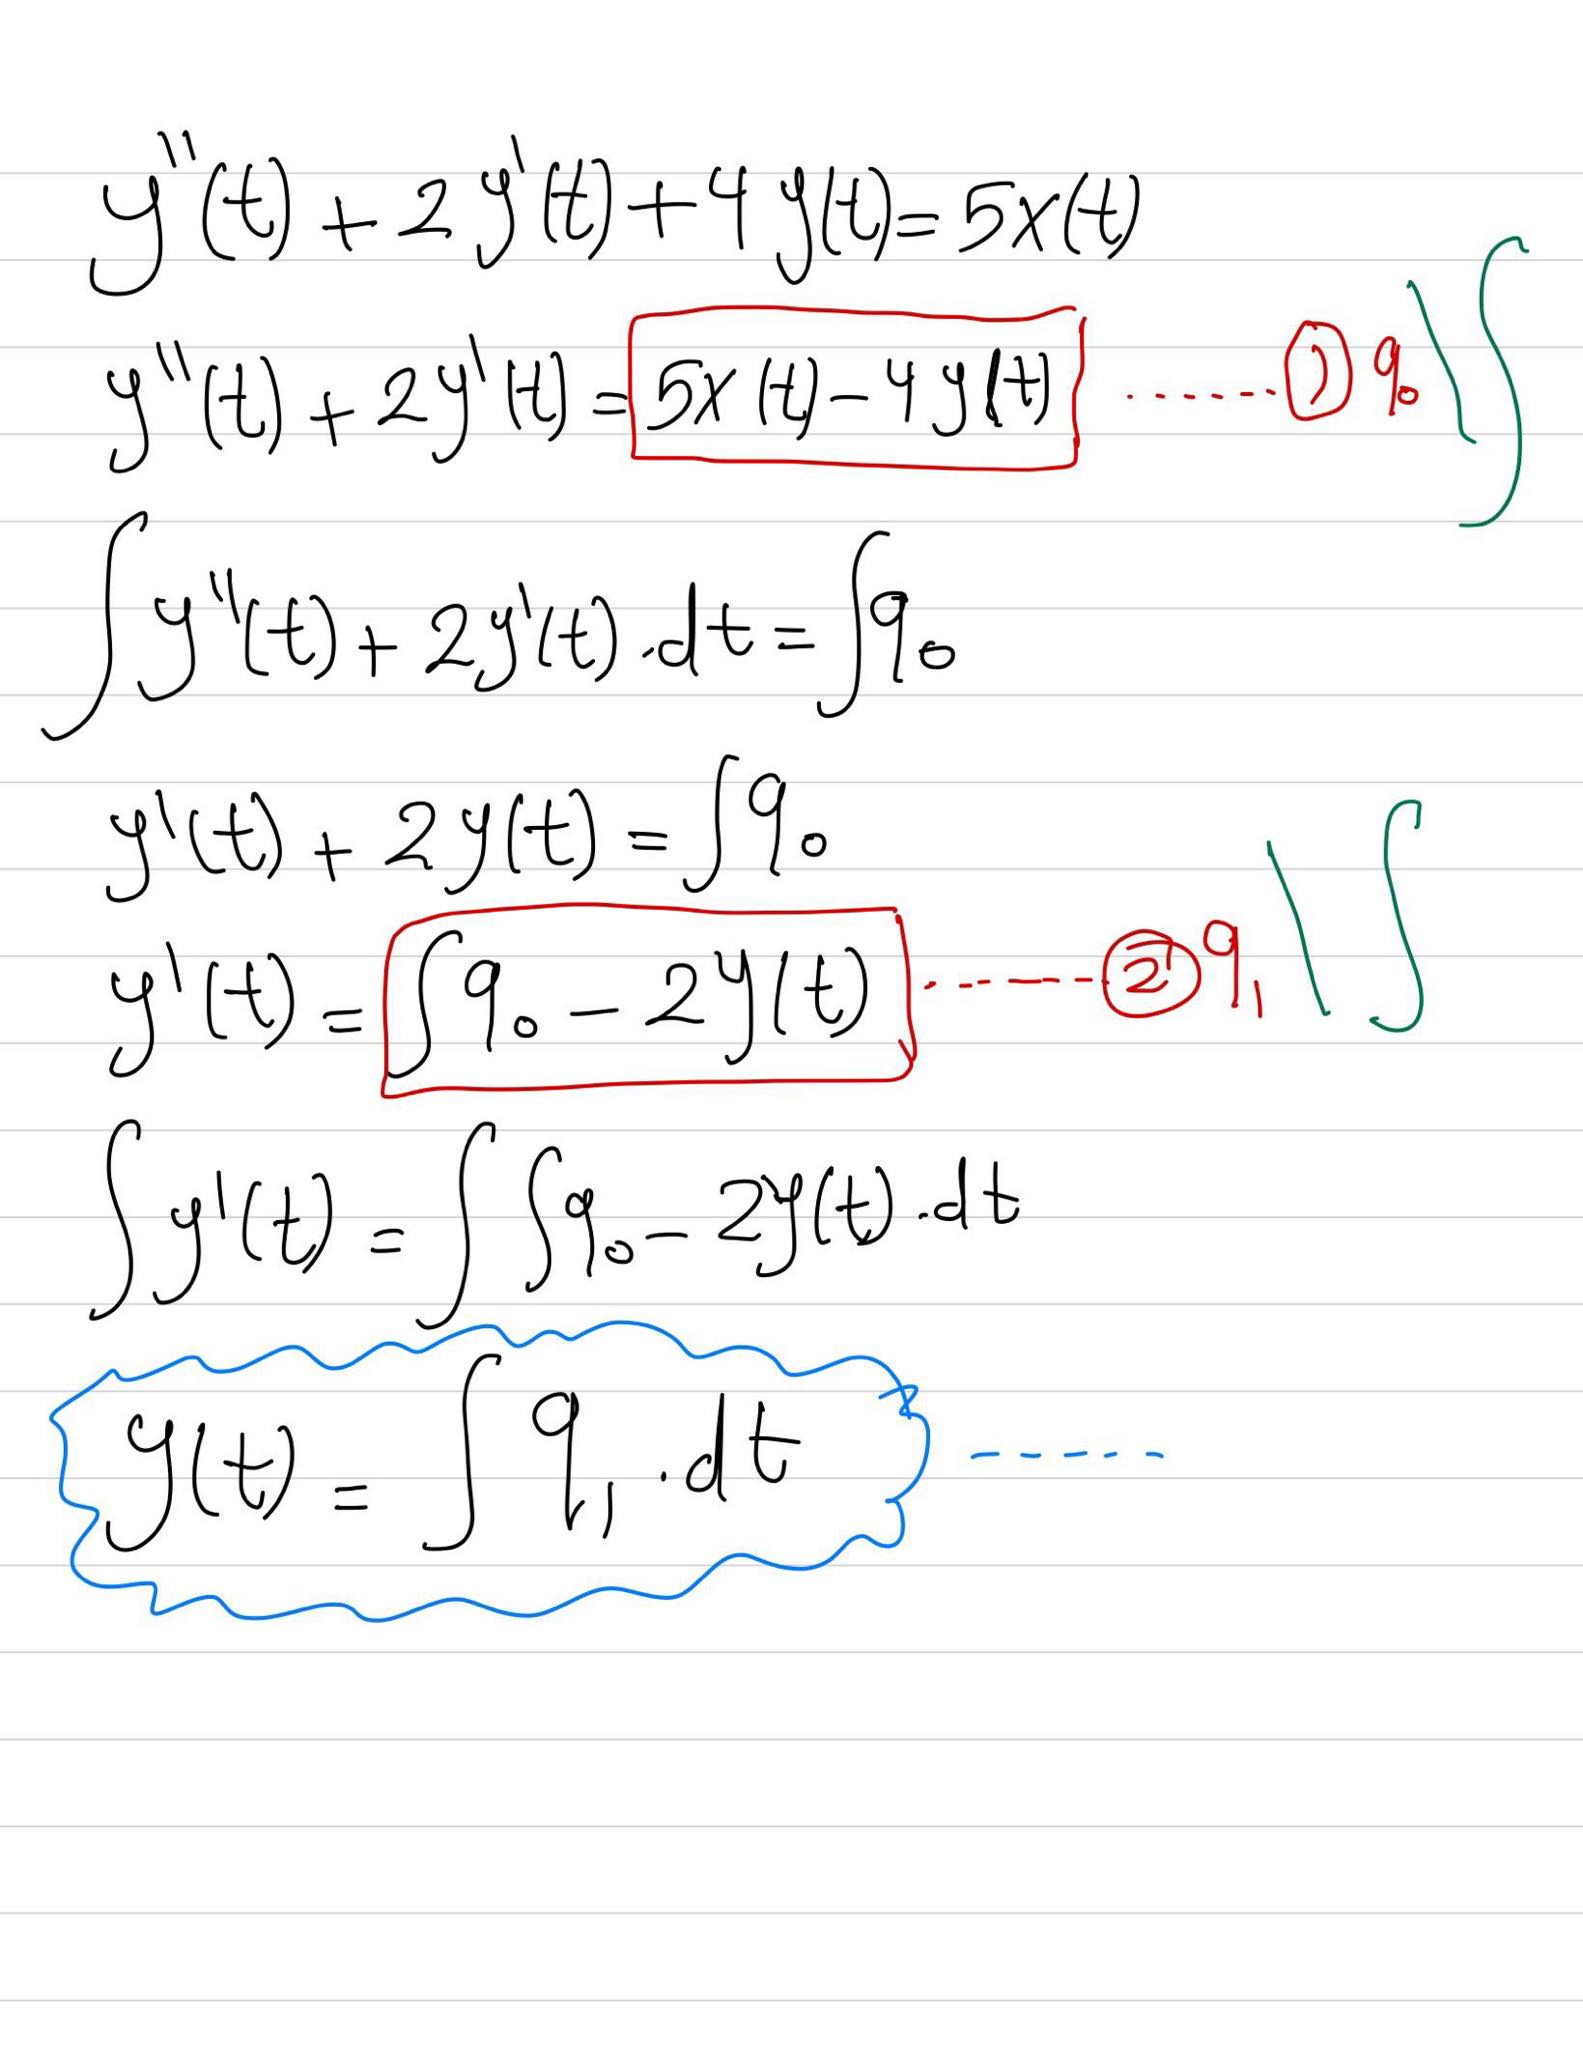 y''(t) + 2y'(t) + 4y(t) = 5x(t)
y''(t) + 2y'(t) = 5x(t) - 4y(t) ------- ① q₀ \ ∫
∫ y''(t) + 2y'(t) .dt = ∫ q₀
y'(t) + 2y(t) = ∫ q₀
y'(t) = ∫ q₀ - 2y(t) ------- ② q₁ \ ∫
∫ y'(t) = ∫ ∫ q₀ - 2y(t) .dt
y(t) = ∫ q₁ .dt -----